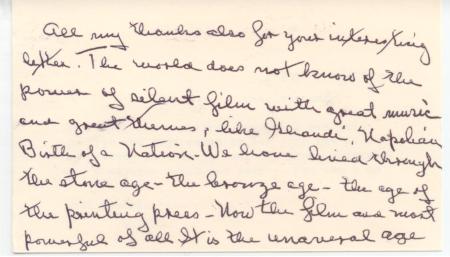 All my thanks also for your interesting
letter. The world does not know of the
power of silent film with great music
and great themes, like Ghandi, Napoleon
Birth of a Nation. We have lived through
the stone age - the bronze age - the age of
the printing press - Now the film and most
powerful of all It is the universal age